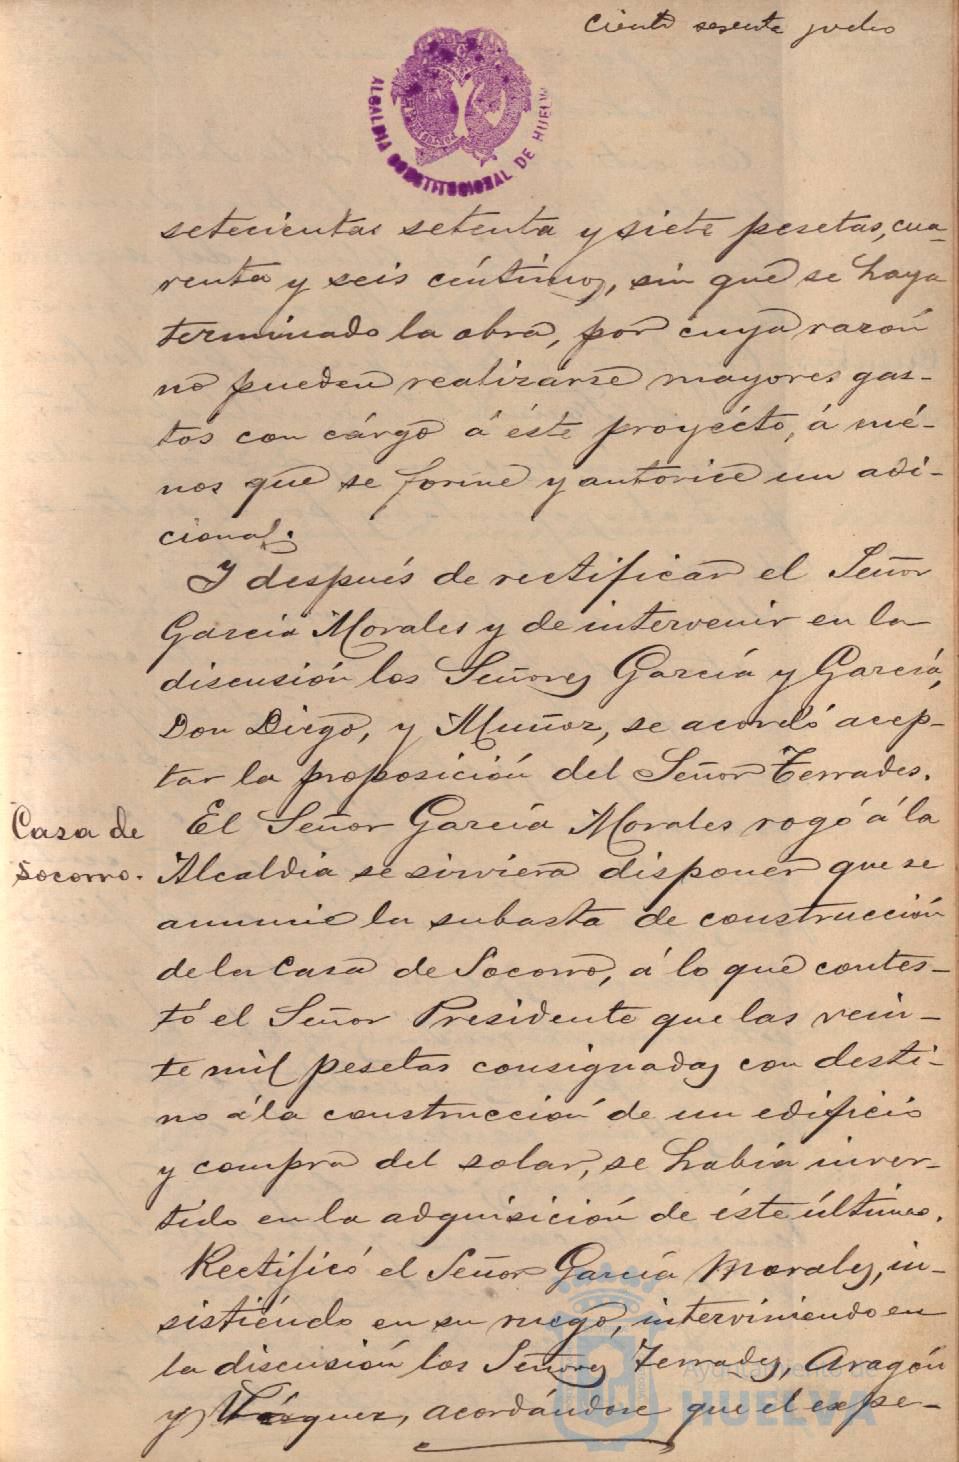 Ciento sesenta y ocho
ALCALDIA CONSTITUCIONAL DE HUELVA
setecientas setenta y siete pesetas, cua-
renta y seis céntimos, sin que se haya
terminado la obra, por cuya razón
no pueden realizarse mayores gas-
tos con cárgo á éste proyécto, á mé-
nos que se forme y autorice un adi-
cional.
Y después de rectificar el Señor
García Morales y de intervenir en la
discusión los Señores García y García,
Don Diego, y Muñoz, se acordó acep-
tar la proposición del Señor Terrades.
Casa de
Socorro.
El Señor García Morales rogó á la
Alcaldia se sirviera disponer que se
anuncie la subasta de construcción
de la Casa de Socorro, á lo que contes-
tó el Señor Presidente que las vein-
te mil pesetas consignadas con desti-
no á la construcción de un edificio
y compra del solar, se había inver-
tido en la adquisición de éste último.
Rectificó el Señor García Morales, in-
sistiéndo en su ruego, interviniendo en
la discusión los Señores Terrades, Aragón
y Vázquez, acordándose que el expe-
Ayuntamiento de
HUELVA